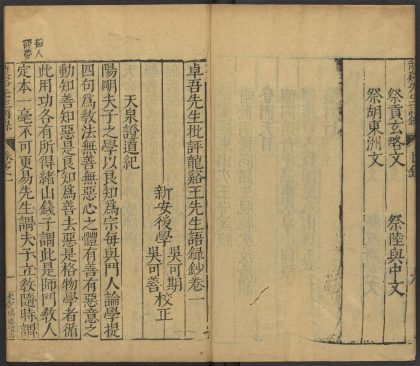 祭貢玄略文
祭陸與中文
祭胡東洲文
卓吾先生批評龍谿王先生語錄鈔卷一
新安後學
吳可期
吳可善
校正
天泉證道紀
陽明夫子之學以良知為宗每與門人論學提
四句為教法無善無惡心之體有善有惡意之
動知善知惡是良知為善去惡是格物學者循
此用功各有所得緒山錢子謂此是師門教人
定本一毫不可更易先生謂夫子立教隨時謂